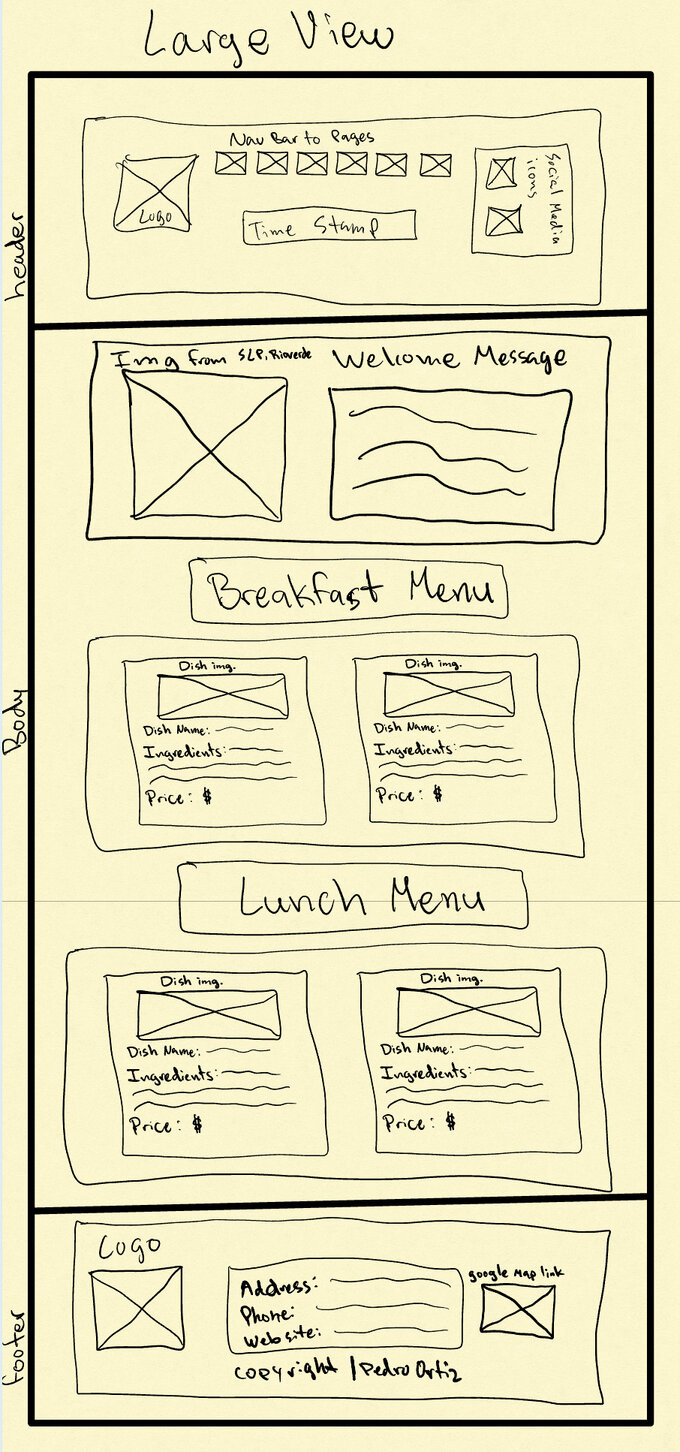 Large View
header
Nav Bar to Pages
Logo
Time Stamp
Social Media
icons
Body
Img from SLP, Rioverde
Welcome Message
Breakfast Menu
Dish img.
Dish Name:
Ingredients:
Price: $
Dish img.
Dish Name:
Ingredients:
Price: $
Lunch Menu
Dish img.
Dish Name:
Ingredients:
Price: $
Dish img.
Dish Name:
Ingredients:
Price: $
footer
Logo
Address:
Phone:
Website:
google map link
copyright | Pedro Ortiz